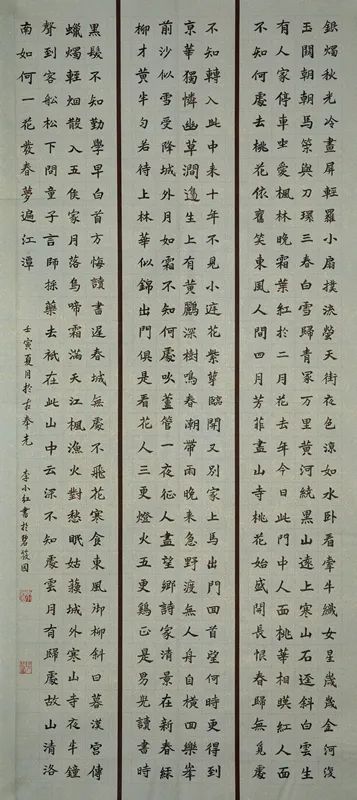 銀燭秋光冷畫屏輕羅小扇撲流螢天街夜色涼如水臥看牽牛織女星歲歲金河復
玉關朝朝馬策與刀環三春白雪歸青冢萬里黃河繞黑山遠上寒山石逕斜白雲生
有人家停車坐愛楓林晚霜葉紅於二月花去年今日此門中人面桃華相暎紅人面
不知何處去桃花依舊笑東風人間四月芳菲盡山寺桃花始盛開長恨春歸無覓處
不知轉入此中来十年不見小庭花紫萼臨開又別家上馬出門回首望何時更得到
京華獨憐幽草澗邊生上有黃鸝深樹鳴春潮帶雨晚来急野渡無人舟自橫回樂峯
前沙似雪受降城外月如霜不知何處吹蘆管一夜征人盡望鄉詩家清景在新春綠
柳才黃半勻若待上林華似錦出門俱是看花人三更燈火五更鷄正是男兒讀書時
黑髮不知勤學早白首方悔讀書遲春城無處不飛花寒食東風御柳斜日暮漢宮傳
蠟燭輕烟散入五侯家月落烏啼霜滿天江楓漁火對愁眠姑蘇城外寒山寺夜半鐘
聲到客船松下問童子言師採藥去秖在此山中云深不知處雲月有歸處故山清洛
南如何一花發春夢遍江潭
壬寅夏月於古奉先 李小紅書於碧筱園